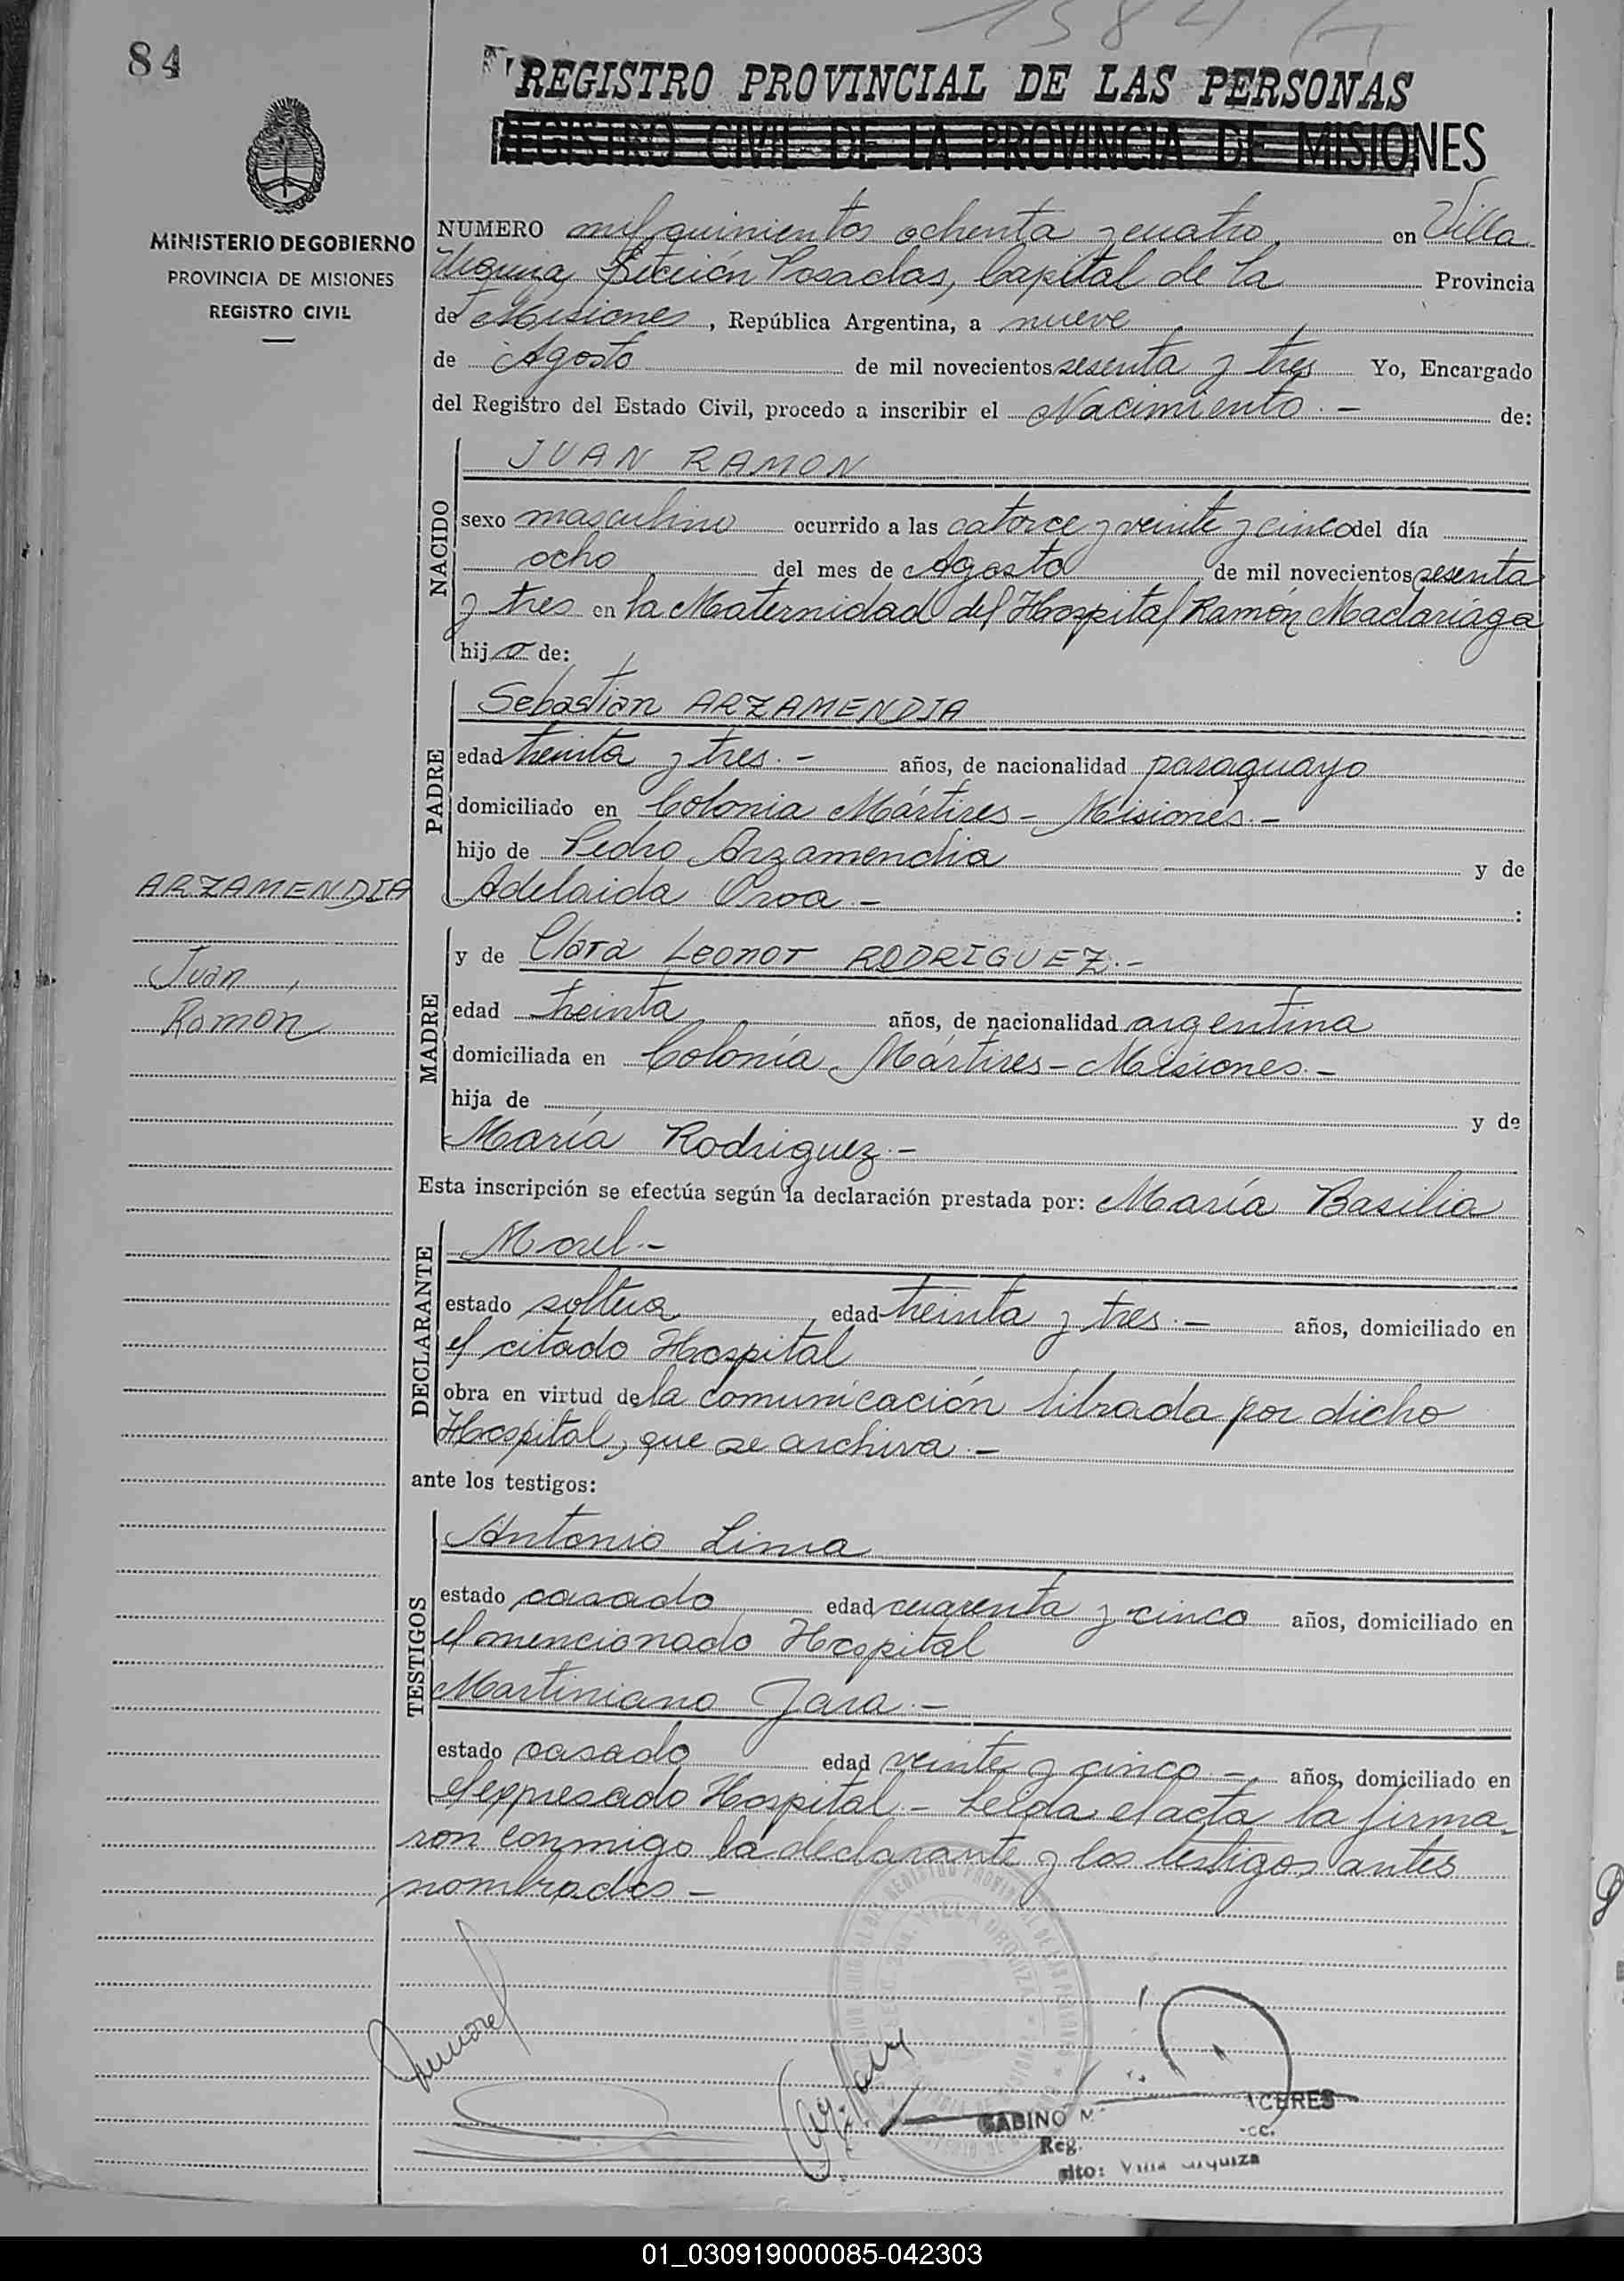 84
1584
REGISTRO PROVINCIAL DE LAS PERSONAS
REGISTRO CIVIL DE LA PROVINCIA DE MISIONES
MINISTERIO DE GOBIERNO
PROVINCIA DE MISIONES
REGISTRO CIVIL
NUMERO mil quinientos ochenta y cuatro en Villa
Urquiza Sección Posadas, Capital de la Provincia
de Misiones, República Argentina, a nueve
de Agosto de mil novecientos sesenta y tres Yo, Encargado
del Registro del Estado Civil, procedo a inscribir el Nacimiento.- de:
NACIDO
JUAN RAMON
sexo masculino ocurrido a las catorce y veinte y cinco del día
ocho del mes de Agosto de mil novecientos sesenta
y tres en la Maternidad del Hospital Ramón Madariaga
hijo de:
PADRE
Sebastian ARZAMENDIA
edad treinta y tres.- años, de nacionalidad paraguayo
domiciliado en Colonia Mártires - Misiones.-
hijo de Pedro Arzamendia y de
Adelaida :
ARZAMENDIA
Juan
Ramón
MADRE
y de Clara Leonor RODRIGUEZ.-
edad treinta años, de nacionalidad argentina
domiciliada en Colonia Mártires - Misiones.-
hija de y de
María Rodriguez.-
Esta inscripción se efectúa según la declaración prestada por: María Basilia
DECLARANTE
Morel.-
estado soltera edad treinta y tres.- años, domiciliado en
el citado Hospital
obra en virtud de la comunicación librada por dicho
Hospital, que se archiva.-
ante los testigos:
TESTIGOS
Antonio Lima
estado casado edad cuarenta y cinco años, domiciliado en
el mencionado Hospital
Martiniano Jara.-
estado casado edad veinte y cinco.- años, domiciliado en
el expresado Hospital.- Leida el acta la firma-
ron conmigo la declarante y los testigos antes
nombrados -
GABINO M CERES
Reg.
Villa Urquiza
01_030919000085-042303